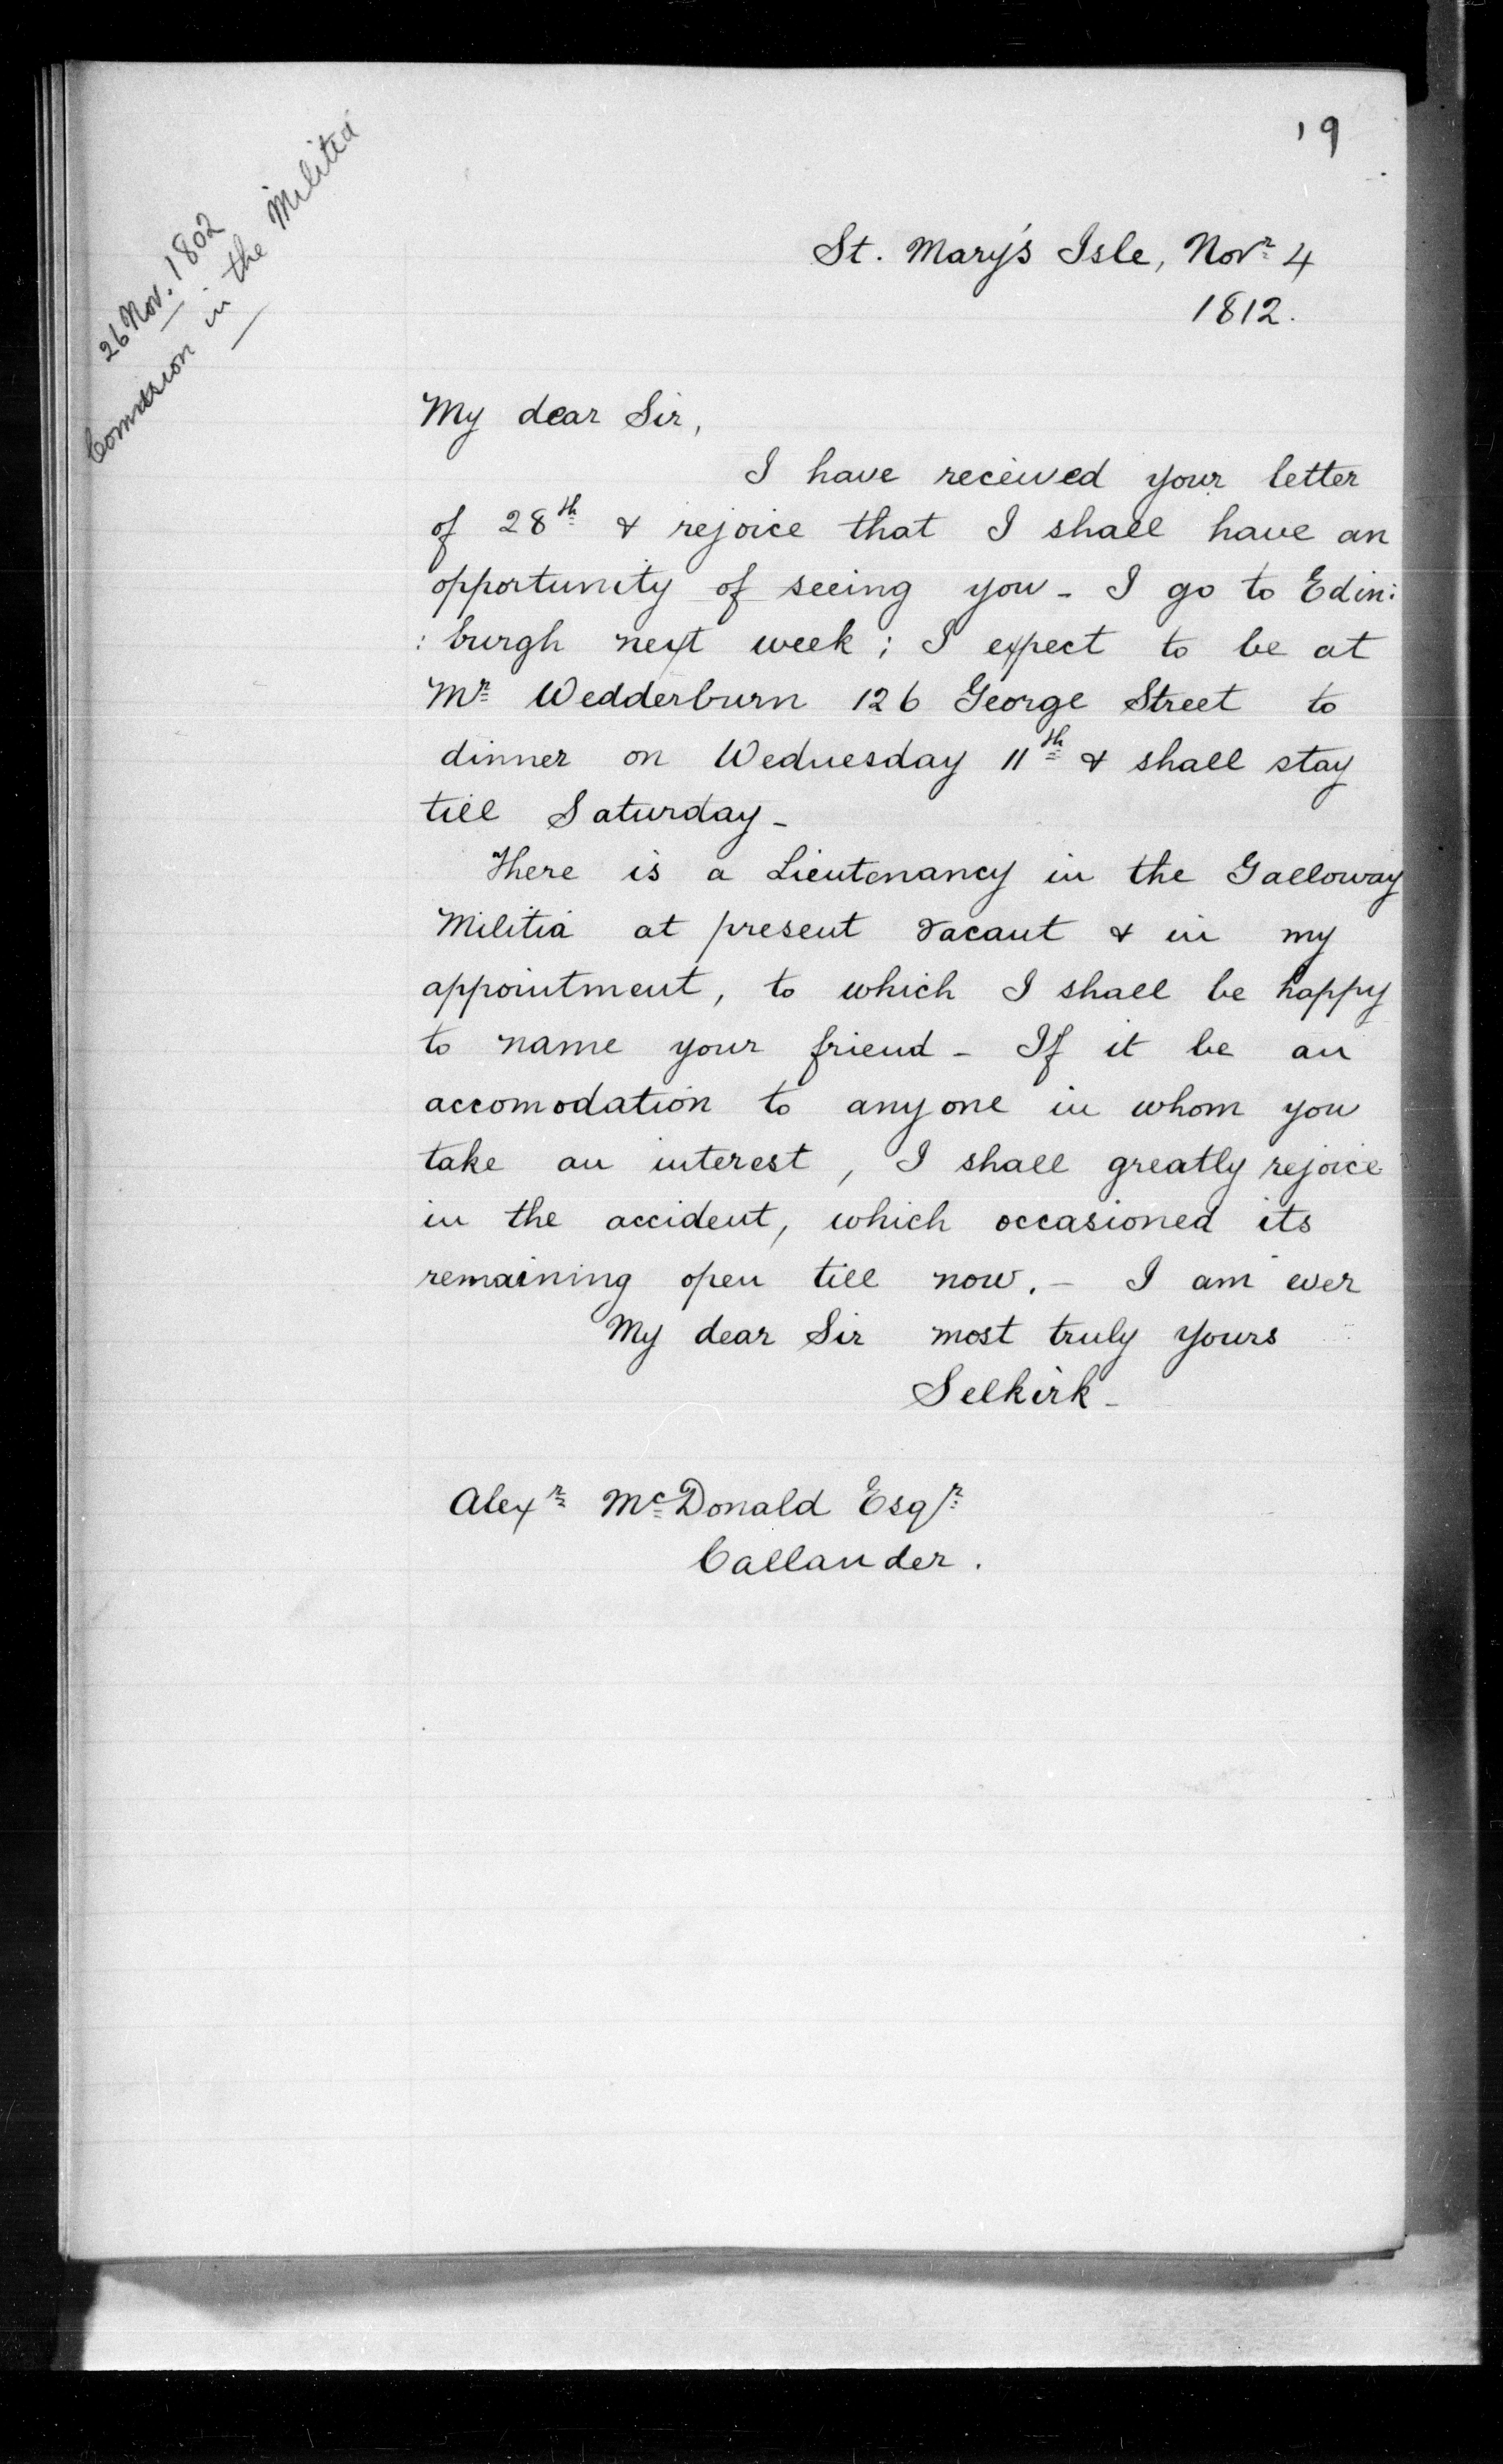 19
26 Nov. 1802
Comission in the Militia
St. Mary's Isle, Novr. 4
1812.
My dear Sir,
I have received your letter
of 28th & rejoice that I shall have an
opportunity of seeing you - I go to Edin:
: burgh next week ; I expect to be at
Mr Wedderburn 126 George Street to
dinner on Wednesday 11th & shall stay
till Saturday -
There is a Lieutenancy in the Galloway
Militia at present vacant & in my
appointment, to which I shall be happy
to name your friend - If it be an
accomodation to any one in whom you
take an interest, I shall greatly rejoice
in the accident, which occasioned its
remaining open till now. - I am ever
My dear Sir most truly yours
Selkirk -
Alexr McDonald Esqr.
Callander.